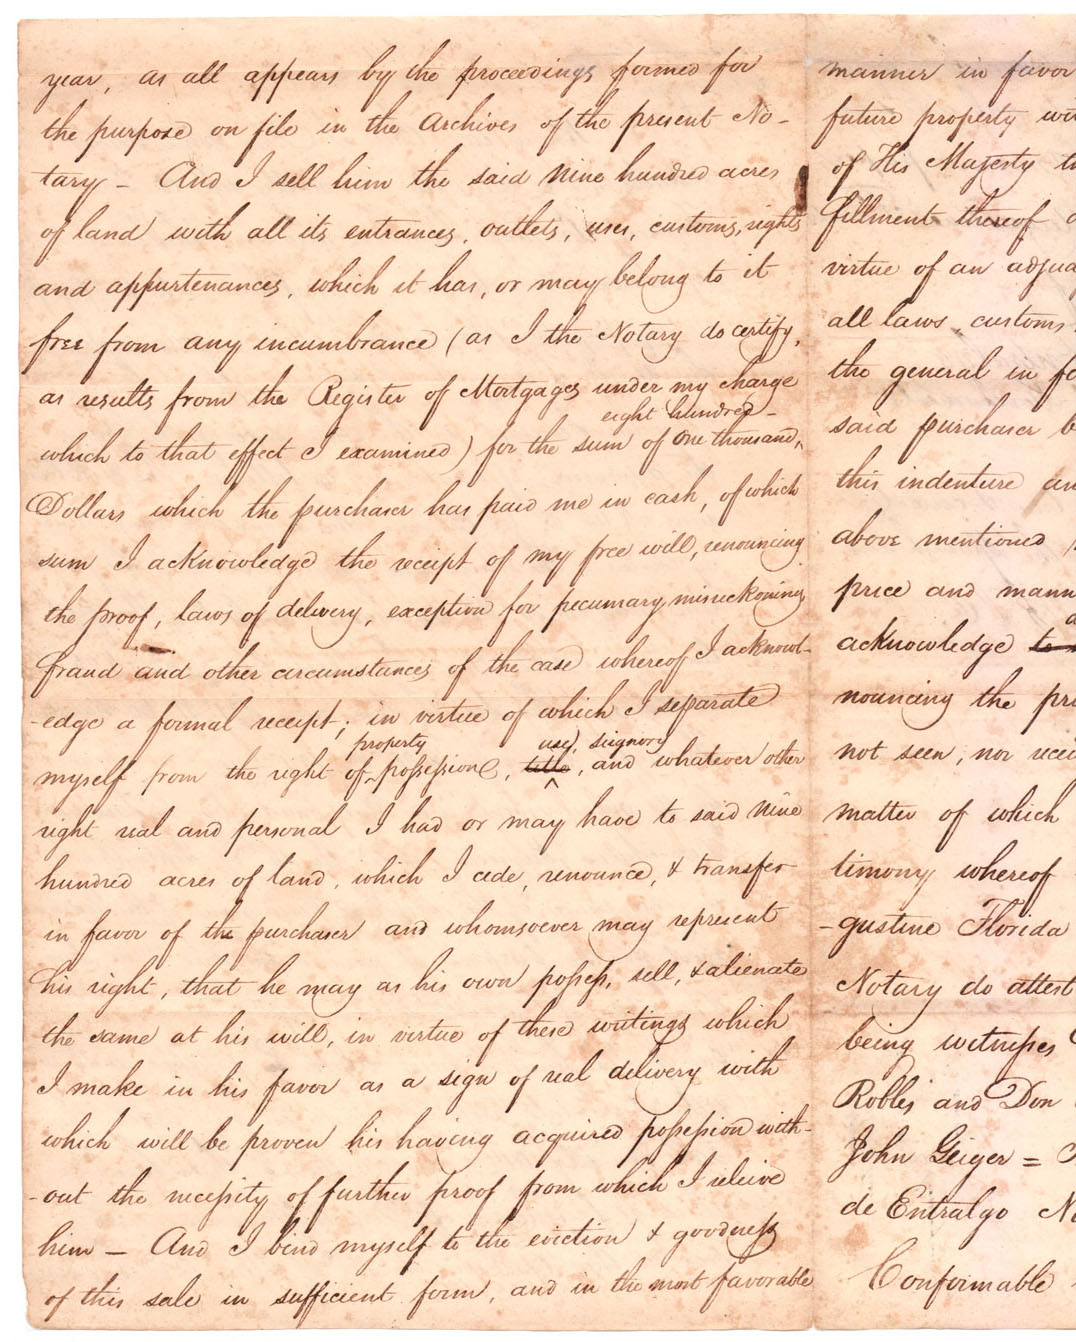 year, as all appears by the proceedings formed for
the purpose on file in the Archives of the present No-
tary – And I sell him the said Nine hundred acres
of land with all its entrances, outlets, uses, customs, rights
and appurtenances, which it has, or may belong to it
free from any incumbrance (as I the Notary do certify,
as results from the Register of Mortgages under my charge
eight hundred
which to that effect I examined) for the sum of One thousand,
Dollars which the purchaser has paid me in cash, of which
sum I acknowledge the receipt of my free will, renouncing
the proof, laws of delivery, exception for pecuniary misreckoning
fraud and other circumstances of the case whereof I acknowl-
-edge a formal receipt; in virtue of which I separate
property use, signory
myself from the right of possession, title, and whatever other
right real and personal I had or may have to said Nine
hundred acres of land, which I cede, renounce, & transfer
in favor of the purchaser and whomsoever may represent
his right, that he may as his own possess, sell, & alienate
the same at his will, in virtue of these writings which
I make in his favor as a sign of real delivery with
which will be proven his having acquired possession with-
-out the necessity of further proof from which I releive
him – And I bind myself to the eviction & goodness
of this sale in sufficient form, and in the most favorable
manner in favor
future property
of His Majesty
fillment thereof
virtue of an
all laws, customs
the general in
said purchaser
this indenture
above mentioned
price and
acknowledge to
nouncing the
not seen, nor
matter of which
timony whereof
-gustine Florida
Notary do attest
being witnesses
Robles and Don
John Geiger =
de Entralgo
Conformable